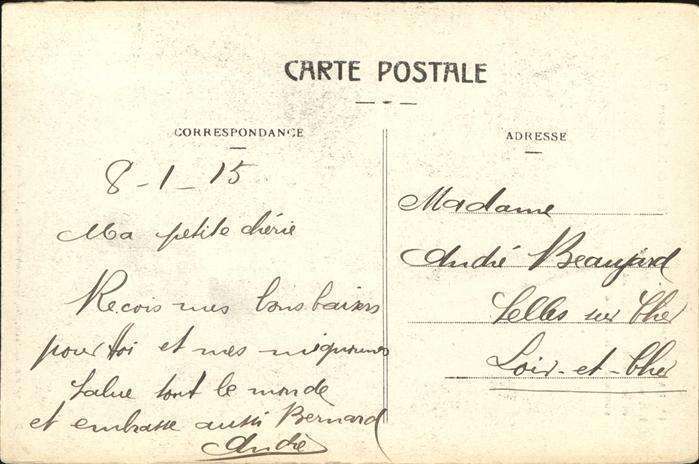 CARTE POSTALE
CORRESPONDANCE
8-1-15
Ma petite chérie
Recois mes bons baisers
pour toi et mes mignonnes
Salue tout le monde
et embrasse aussi Bernard
André
ADRESSE
Madame
André Beaujard
Selles sur Cher
Loir-et-Cher